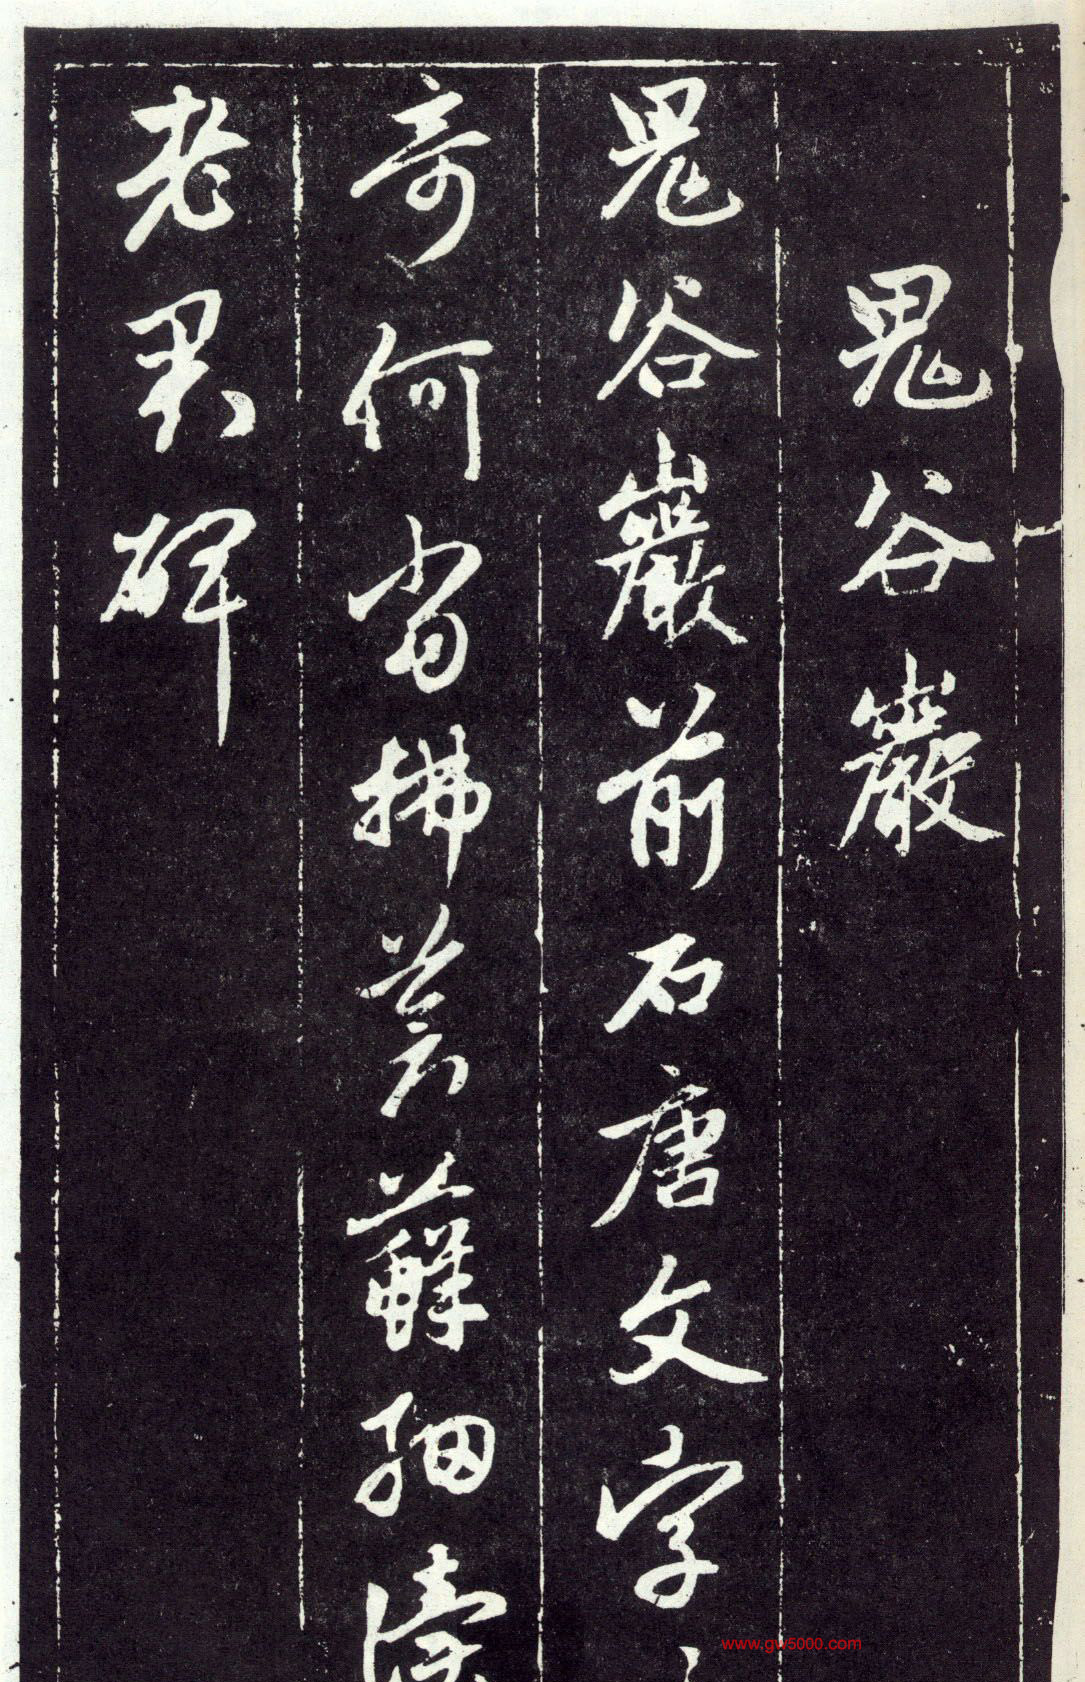 鬼谷巖
鬼谷巖前石唐文字
奇何當拂苔蘚細讀
老君碑
www.gw5000.com